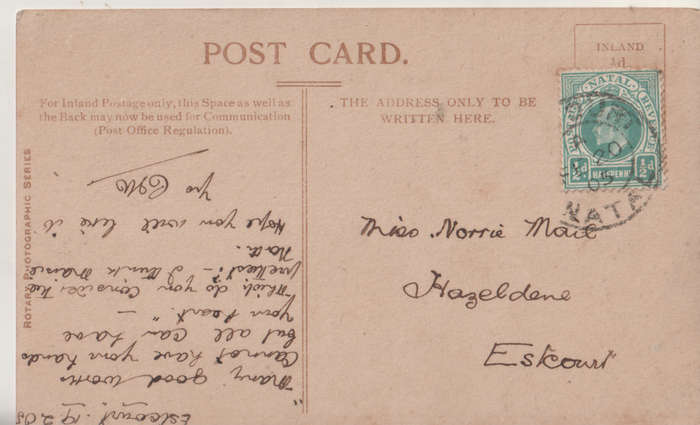 POST CARD.
INLAND
½d.
For Inland Postage only, this Space as well as
the Back may now be used for Communication
(Post Office Regulation).
THE ADDRESS ONLY TO BE
WRITTEN HERE.
ROTARY PHOTOGRAPHIC SERIES
NATAL
POSTAGE
REVENUE
½d
HALFPENNY
½d
20
05
NATA
Miss Norrie Mail
Hazeldene
Estcourt
Estcourt. 19.2.05
"Many good works
Cannot have your hands
but all can have
your heart." —
Which do you consider the
prettiest? — I think Marie
Hope you will like it
Yrs